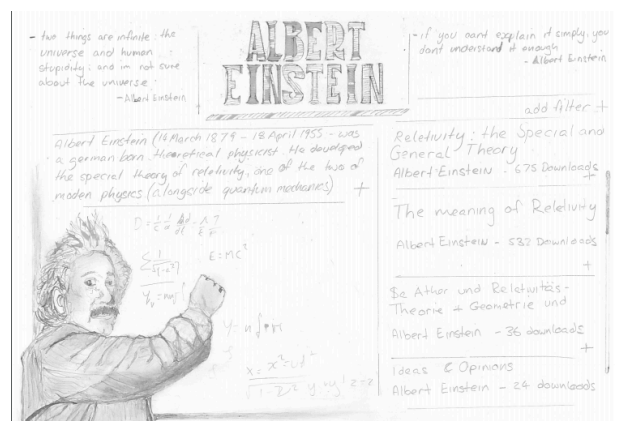 - two things are infinite: the
universe and human
stupidity; and im not sure
about the universe
- Albert Einstein
ALBERT
EINSTEIN
- if you cant explain it simply, you
dont understand it enough
- Albert Einstein
add filter +
Albert Einstein (14 March 1879 - 18 April 1955 - was
a german born theoretical physicist. He developed
the special theory of relativity, one of the two of
moden physics (alongside quantum mechanics)
+
Reletivity: the Special and
General Theory
Albert Einstein . 675 Downloads
+
The meaning of Reletivity
Albert Einstein - 532 Downloads
+
Ather und Relativitäs-
Theorie + Geometrie und
Albert Einstein - 36 downloads
+
Ideas & Opinions
Albert Einstein - 24 downloads
E=MC²